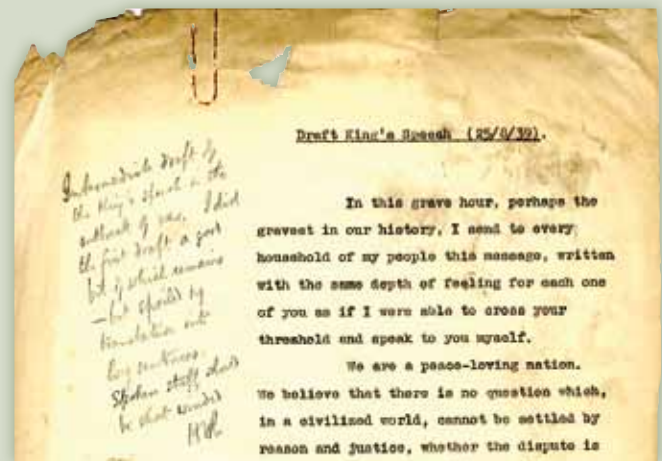 Draft King's Speech (25/8/39).
Intermediate draft of
the King's speech on the
outbreak of war. I did
the first draft a good
bit of which remains
- but spoiled by
translation into
long sentences.
Spoken stuff should
be short worded
In this grave hour, perhaps the
gravest in our history, I send to every
household of my people this message, written
with the same depth of feeling for each one
of you as if I were able to cross your
threshold and speak to you myself.
We are a peace-loving nation.
We believe that there is no question which,
in a civilized world, cannot be settled by
reason and justice, whether the dispute is